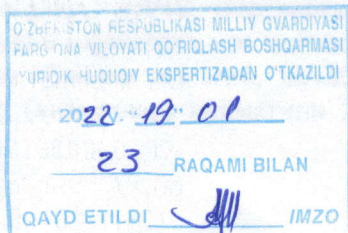 O'ZBEKISTON RESPUBLIKASI MILLIY GVARDIYASI
FARG'ONA VILOYATI QO'RIQLASH BOSHQARMASI
YURIDIK HUQUQIY EKSPERTIZADAN O'TKAZILDI
2022 y. "19" 01
23 RAQAMI BILAN
QAYD ETILDI IMZO